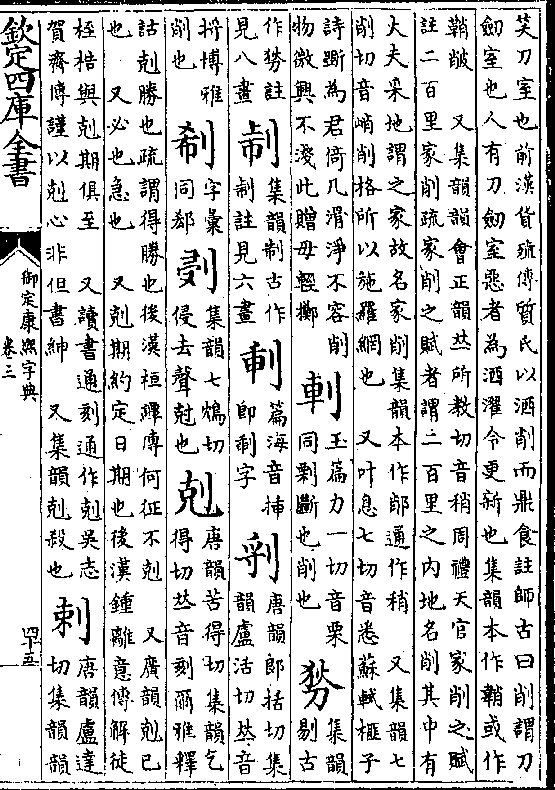 笑刀室也前漢貨殖傳質氏以洒削而鼎食註師古曰削謂刀
劒室也人有刀劒室惡者為洒濯令更新也集韻本作鞘或作
鞘 又集韻韻會正韻𠀤所教切音稍周禮天官家削之賦
註二百里家削疏家削之賦者謂二百里之內地名削其中有
大夫采地謂之家故名家削集韻本作䣍通作稍 又集韻七
削切音峭削格所以施羅網也 又叶息七切音悉蘇軾榧子
詩斵為君倚几滑淨不容削
物微興不淺此贈毋輕擲
玉篇力一切音栗
同㓼斷也削也
集韻
剔古
作 註
見八畫
集韻制古作
制註見六畫
篇海音揷
即刺字
㓩
唐韻郎括切集
韻盧活切𠀤音
將博雅
削也
字彙
同郄
㓹
集韻七鴆切
侵去聲尅也
剋
唐韻苦得切集韻乞
得切𠀤音刻爾雅釋
詁剋勝也疏謂得勝也後漢桓譚傳何征不剋 又廣韻剋已
也 又必也急也 又剋期約定日期也後漢鍾離意傳解徒
桎梏與剋期俱至 又讀書通刻通作剋吳志
賀齊傳謹以剋心非但書紳 又集韻剋殺也
剌
唐韻盧達
切集韻韻
欽定四庫全書
御定康熙字典
卷三
四十五